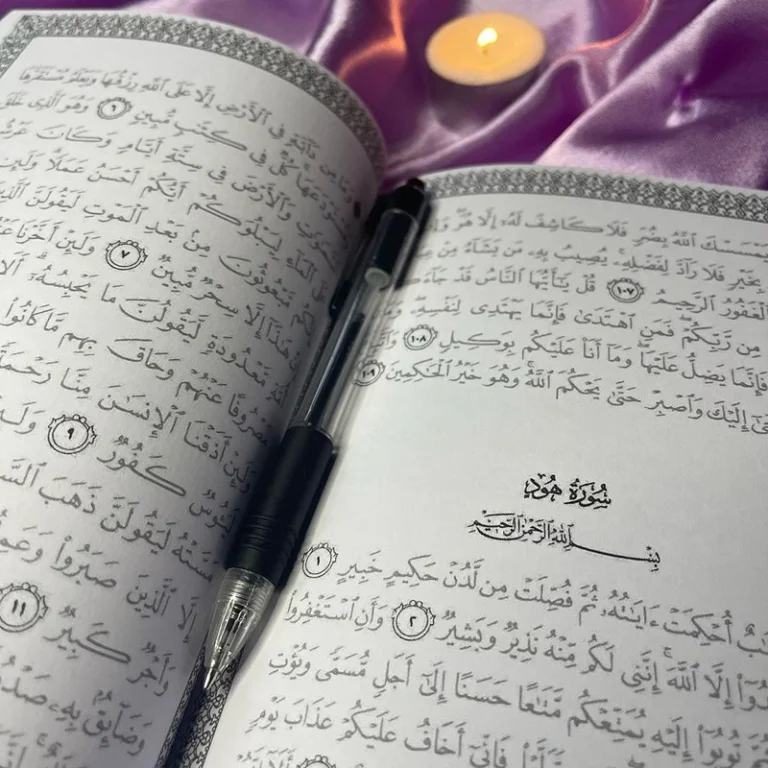 يَمْسَسْكَ ٱللَّهُ بِضُرٍّ فَلَا كَاشِفَ لَهُۥٓ إِلَّا هُوَ وَإِن
بِخَيْرٍ فَلَا رَآدَّ لِفَضْلِهِۦ يُصِيبُ بِهِۦ مَن يَشَآءُ مِنْ
ٱلْغَفُورُ ٱلرَّحِيمُ ١٠٧ قُلْ يَٰٓأَيُّهَا ٱلنَّاسُ قَدْ جَآءَكُمُ
مِن رَّبِّكُمْ فَمَنِ ٱهْتَدَىٰ فَإِنَّمَا يَهْتَدِى لِنَفْسِهِۦ
فَإِنَّمَا يَضِلُّ عَلَيْهَا وَمَآ أَنَا۠ عَلَيْكُم بِوَكِيلٍ ١٠٨
إِلَيْكَ وَٱصْبِرْ حَتَّىٰ يَحْكُمَ ٱللَّهُ وَهُوَ خَيْرُ ٱلْحَٰكِمِينَ ١٠٩
سُورَةُ هُودٍ
بِسْمِ ٱللَّهِ ٱلرَّحْمَٰنِ ٱلرَّحِيمِ
أُحْكِمَتْ ءَايَٰتُهُۥ ثُمَّ فُصِّلَتْ مِن لَّدُنْ حَكِيمٍ خَبِيرٍ ١
إِلَّا ٱللَّهَ إِنَّنِى لَكُم مِّنْهُ نَذِيرٌ وَبَشِيرٌ ٢ وَأَنِ ٱسْتَغْفِرُوا۟
تُوبُوٓا۟ إِلَيْهِ يُمَتِّعْكُم مَّتَٰعًا حَسَنًا إِلَىٰٓ أَجَلٍ مُّسَمًّى وَيُؤْتِ
فَإِنِّىٓ أَخَافُ عَلَيْكُمْ عَذَابَ يَوْمٍ
وَمَا مِن دَآبَّةٍ فِى ٱلْأَرْضِ إِلَّا عَلَى ٱللَّهِ رِزْقُهَا وَيَعْلَمُ مُسْتَقَرَّهَا
وَمُسْتَوْدَعَهَا كُلٌّ فِى كِتَٰبٍ مُّبِينٍ ٦ وَهُوَ ٱلَّذِى خَلَقَ
وَٱلْأَرْضَ فِى سِتَّةِ أَيَّامٍ وَكَانَ عَرْشُهُۥ
ٱلْمَآءِ لِيَبْلُوَكُمْ أَيُّكُمْ أَحْسَنُ عَمَلًا وَلَئِن
مَّبْعُوثُونَ مِنۢ بَعْدِ ٱلْمَوْتِ لَيَقُولَنَّ ٱلَّذِينَ
هَٰذَآ إِلَّا سِحْرٌ مُّبِينٌ ٧ وَلَئِنْ أَخَّرْنَا
مَّعْدُودَةٍ لَّيَقُولُنَّ مَا يَحْبِسُهُۥٓ أَلَا
مَصْرُوفًا عَنْهُمْ وَحَاقَ بِهِم مَّا كَانُوا۟
وَلَئِنْ أَذَقْنَا ٱلْإِنسَٰنَ مِنَّا رَحْمَةً
لَيَـُٔوسٌ كَفُورٌ ٩
مَسَّتْهُ لَيَقُولَنَّ ذَهَبَ
إِلَّا ٱلَّذِينَ صَبَرُوا۟ وَعَمِلُوا۟
وَأَجْرٌ كَبِيرٌ ١١
وَضَآئِقٌۢ بِهِۦ صَدْرُكَ